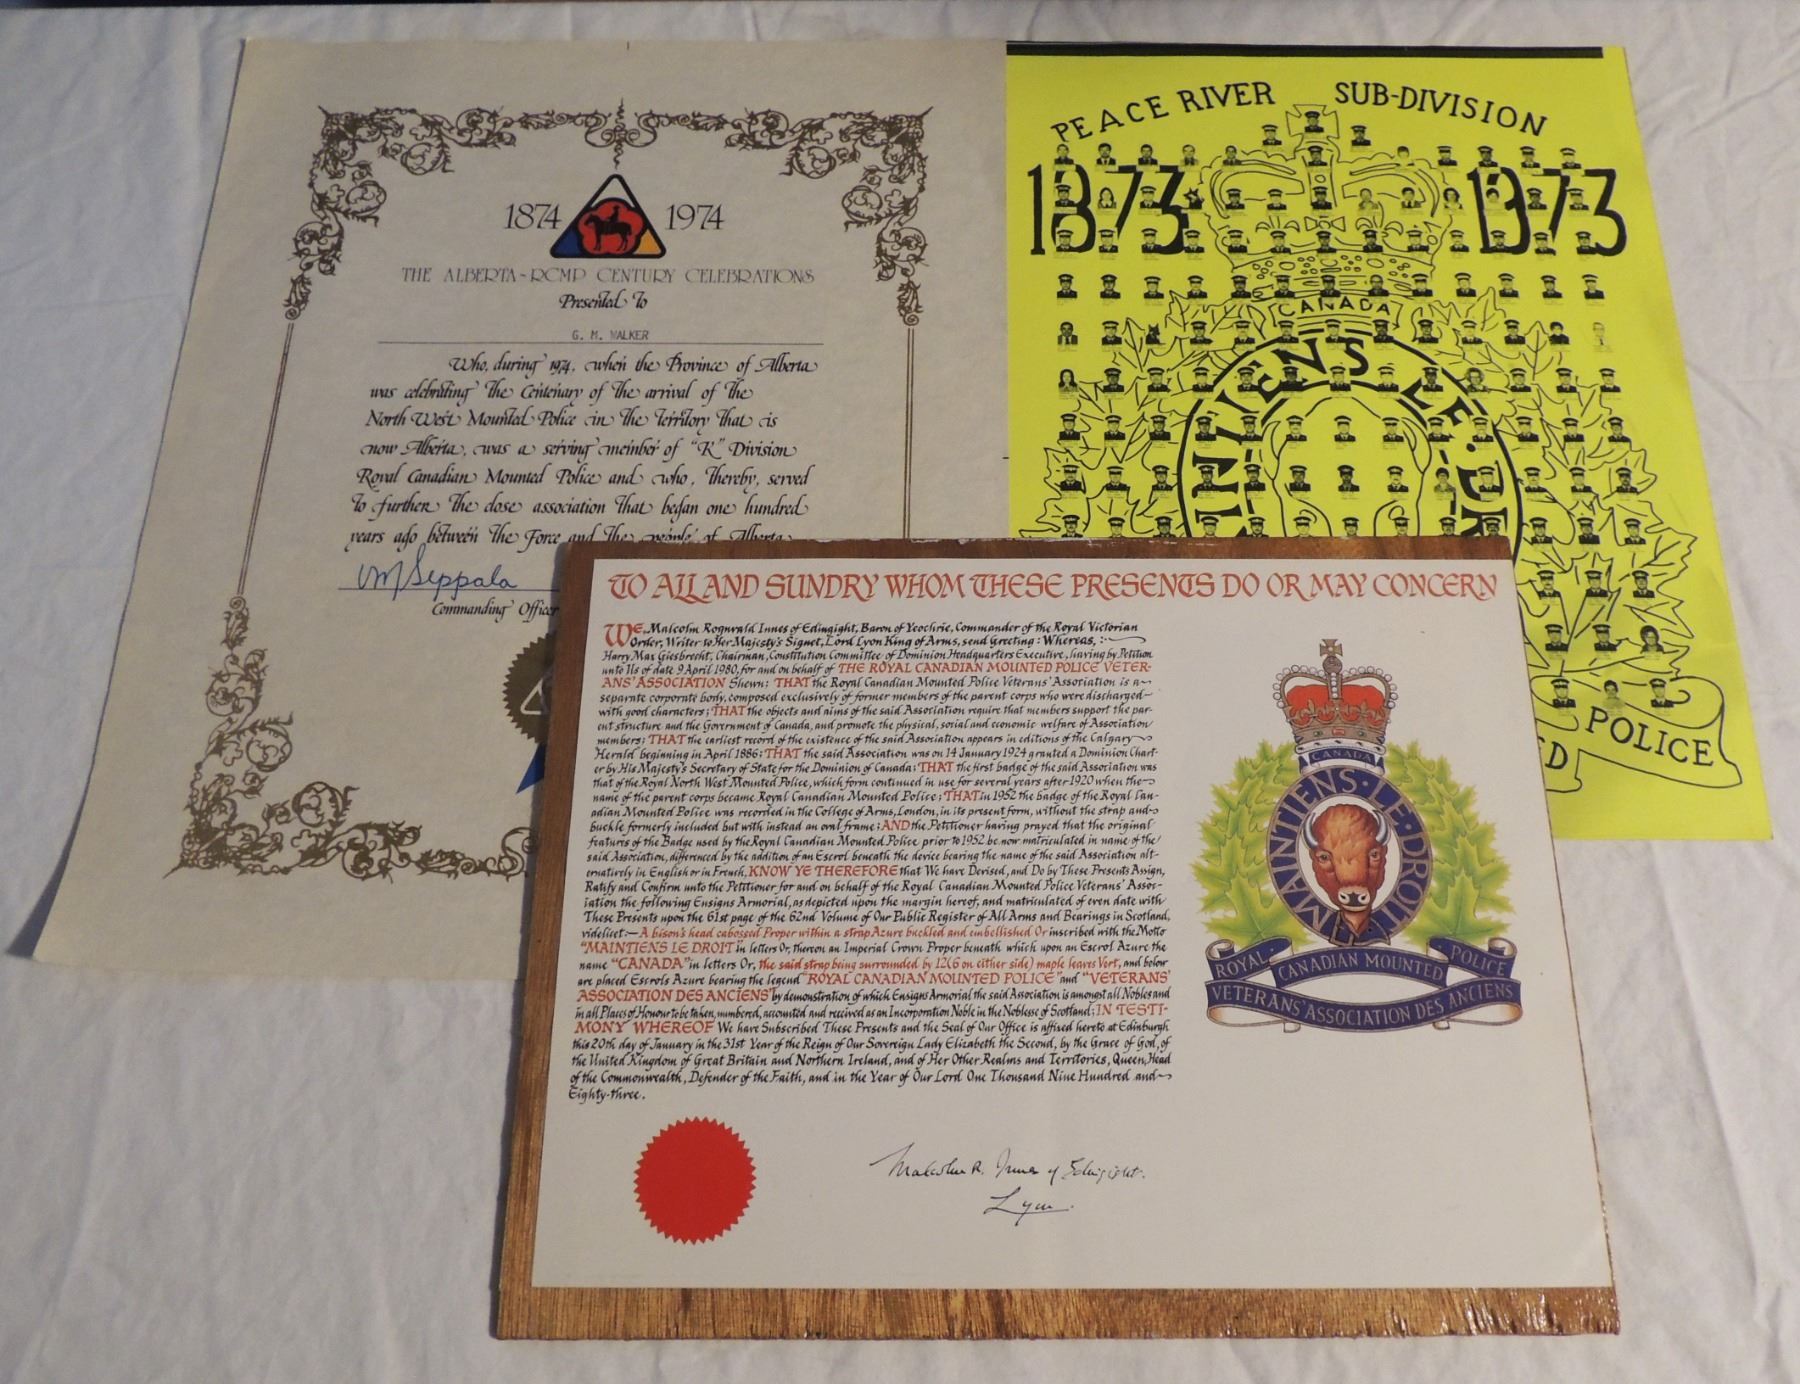 1874 1974
THE ALBERTA-RCMP CENTURY CELEBRATIONS
Presented To
G. M. WALKER
Who, during 1974, when the Province of Alberta
was celebrating The Centenary of The arrival of The
North West Mounted Police in The Territory That is
now Alberta, was a serving member of "K" Division
Royal Canadian Mounted Police and who, Thereby, served
To further The close association That began one hundred
years ago between The Force and The people of Alberta
Seppala
Commanding Officer
PEACE RIVER SUB-DIVISION
1873 1973
CANADA
POLICE
TO ALL AND SUNDRY WHOM THESE PRESENTS DO OR MAY CONCERN
WE, Malcolm Rognvald Innes of Edingight, Baron of Yeochrie, Commander of the Royal Victorian
Order, Writer to Her Majesty's Signet, Lord Lyon King of Arms, send Greeting: Whereas, :-
Harry Max Giesbrecht, Chairman, Constitution Committee of Dominion Headquarters Executive, having by Petition
unto Us of date 9 April 1980, for and on behalf of THE ROYAL CANADIAN MOUNTED POLICE VETER-
ANS' ASSOCIATION Shewn: THAT the Royal Canadian Mounted Police Veterans' Association is a
separate corporate body, composed exclusively of former members of the parent corps who were discharged
with good characters; THAT the objects and aims of the said Association require that members support the par-
ent structure and the Government of Canada, and promote the physical, social and economic welfare of Association
members: THAT the earliest record of the existence of the said Association appears in editions of the Calgary
Herald beginning in April 1886: THAT the said Association was on 14 January 1924 granted a Dominion Chart-
er by His Majesty's Secretary of State for the Dominion of Canada: THAT the first badge of the said Association was
that of the Royal North West Mounted Police, which form continued in use for several years after 1920 when the
name of the parent corps became Royal Canadian Mounted Police; THAT in 1952 the badge of the Royal Can-
adian Mounted Police was recorded in the College of Arms, London, in its present form, without the strap and
buckle formerly included but with instead an oval frame; AND the Petitioner having prayed that the original
features of the Badge used by the Royal Canadian Mounted Police prior to 1952 be now matriculated in name of the
said Association, differenced by the addition of an Escrol beneath the device bearing the name of the said Association alt-
ernatively in English or in French, KNOW YE THEREFORE that We have Devised, and Do by These Presents Assign,
Ratify and Confirm unto the Petitioner for and on behalf of the Royal Canadian Mounted Police Veterans' Assoc-
iation the following Ensigns Armorial, as depicted upon the margin hereof, and matriculated of even date with
These Presents upon the 61st page of the 62nd Volume of Our Public Register of All Arms and Bearings in Scotland,
videlicet:— A bison's head cabossed Proper within a strap Azure buckled and embellished Or inscribed with the Motto
"MAINTIENS LE DROIT" in letters Or, thereon an Imperial Crown Proper beneath which upon an Escrol Azure the
name "CANADA" in letters Or, the said strap being surrounded by 12 (6 on either side) maple leaves Vert, and below
are placed Escrols Azure bearing the legend "ROYAL CANADIAN MOUNTED POLICE" and "VETERANS'
ASSOCIATION DES ANCIENS" by demonstration of which Ensigns Armorial the said Association is amongst all Nobles and
in all Places of Honour to be taken, numbered, accounted and received as an Incorporation Noble in the Noblesse of Scotland; IN TESTI-
MONY WHEREOF We have Subscribed These Presents and the Seal of Our Office is affixed hereto at Edinburgh
this 20th day of January in the 31st Year of the Reign of Our Sovereign Lady Elizabeth the Second, by the Grace of God, of
the United Kingdom of Great Britain and Northern Ireland, and of Her Other Realms and Territories, Queen, Head
of the Commonwealth, Defender of the Faith, and in the Year of Our Lord One Thousand Nine Hundred and
Eighty-three.
Malcolm R. Innes of Edingight.
Lyon
CANADA
MAINTIENS·LE·DROIT
ROYAL CANADIAN MOUNTED POLICE
VETERANS' ASSOCIATION DES ANCIENS